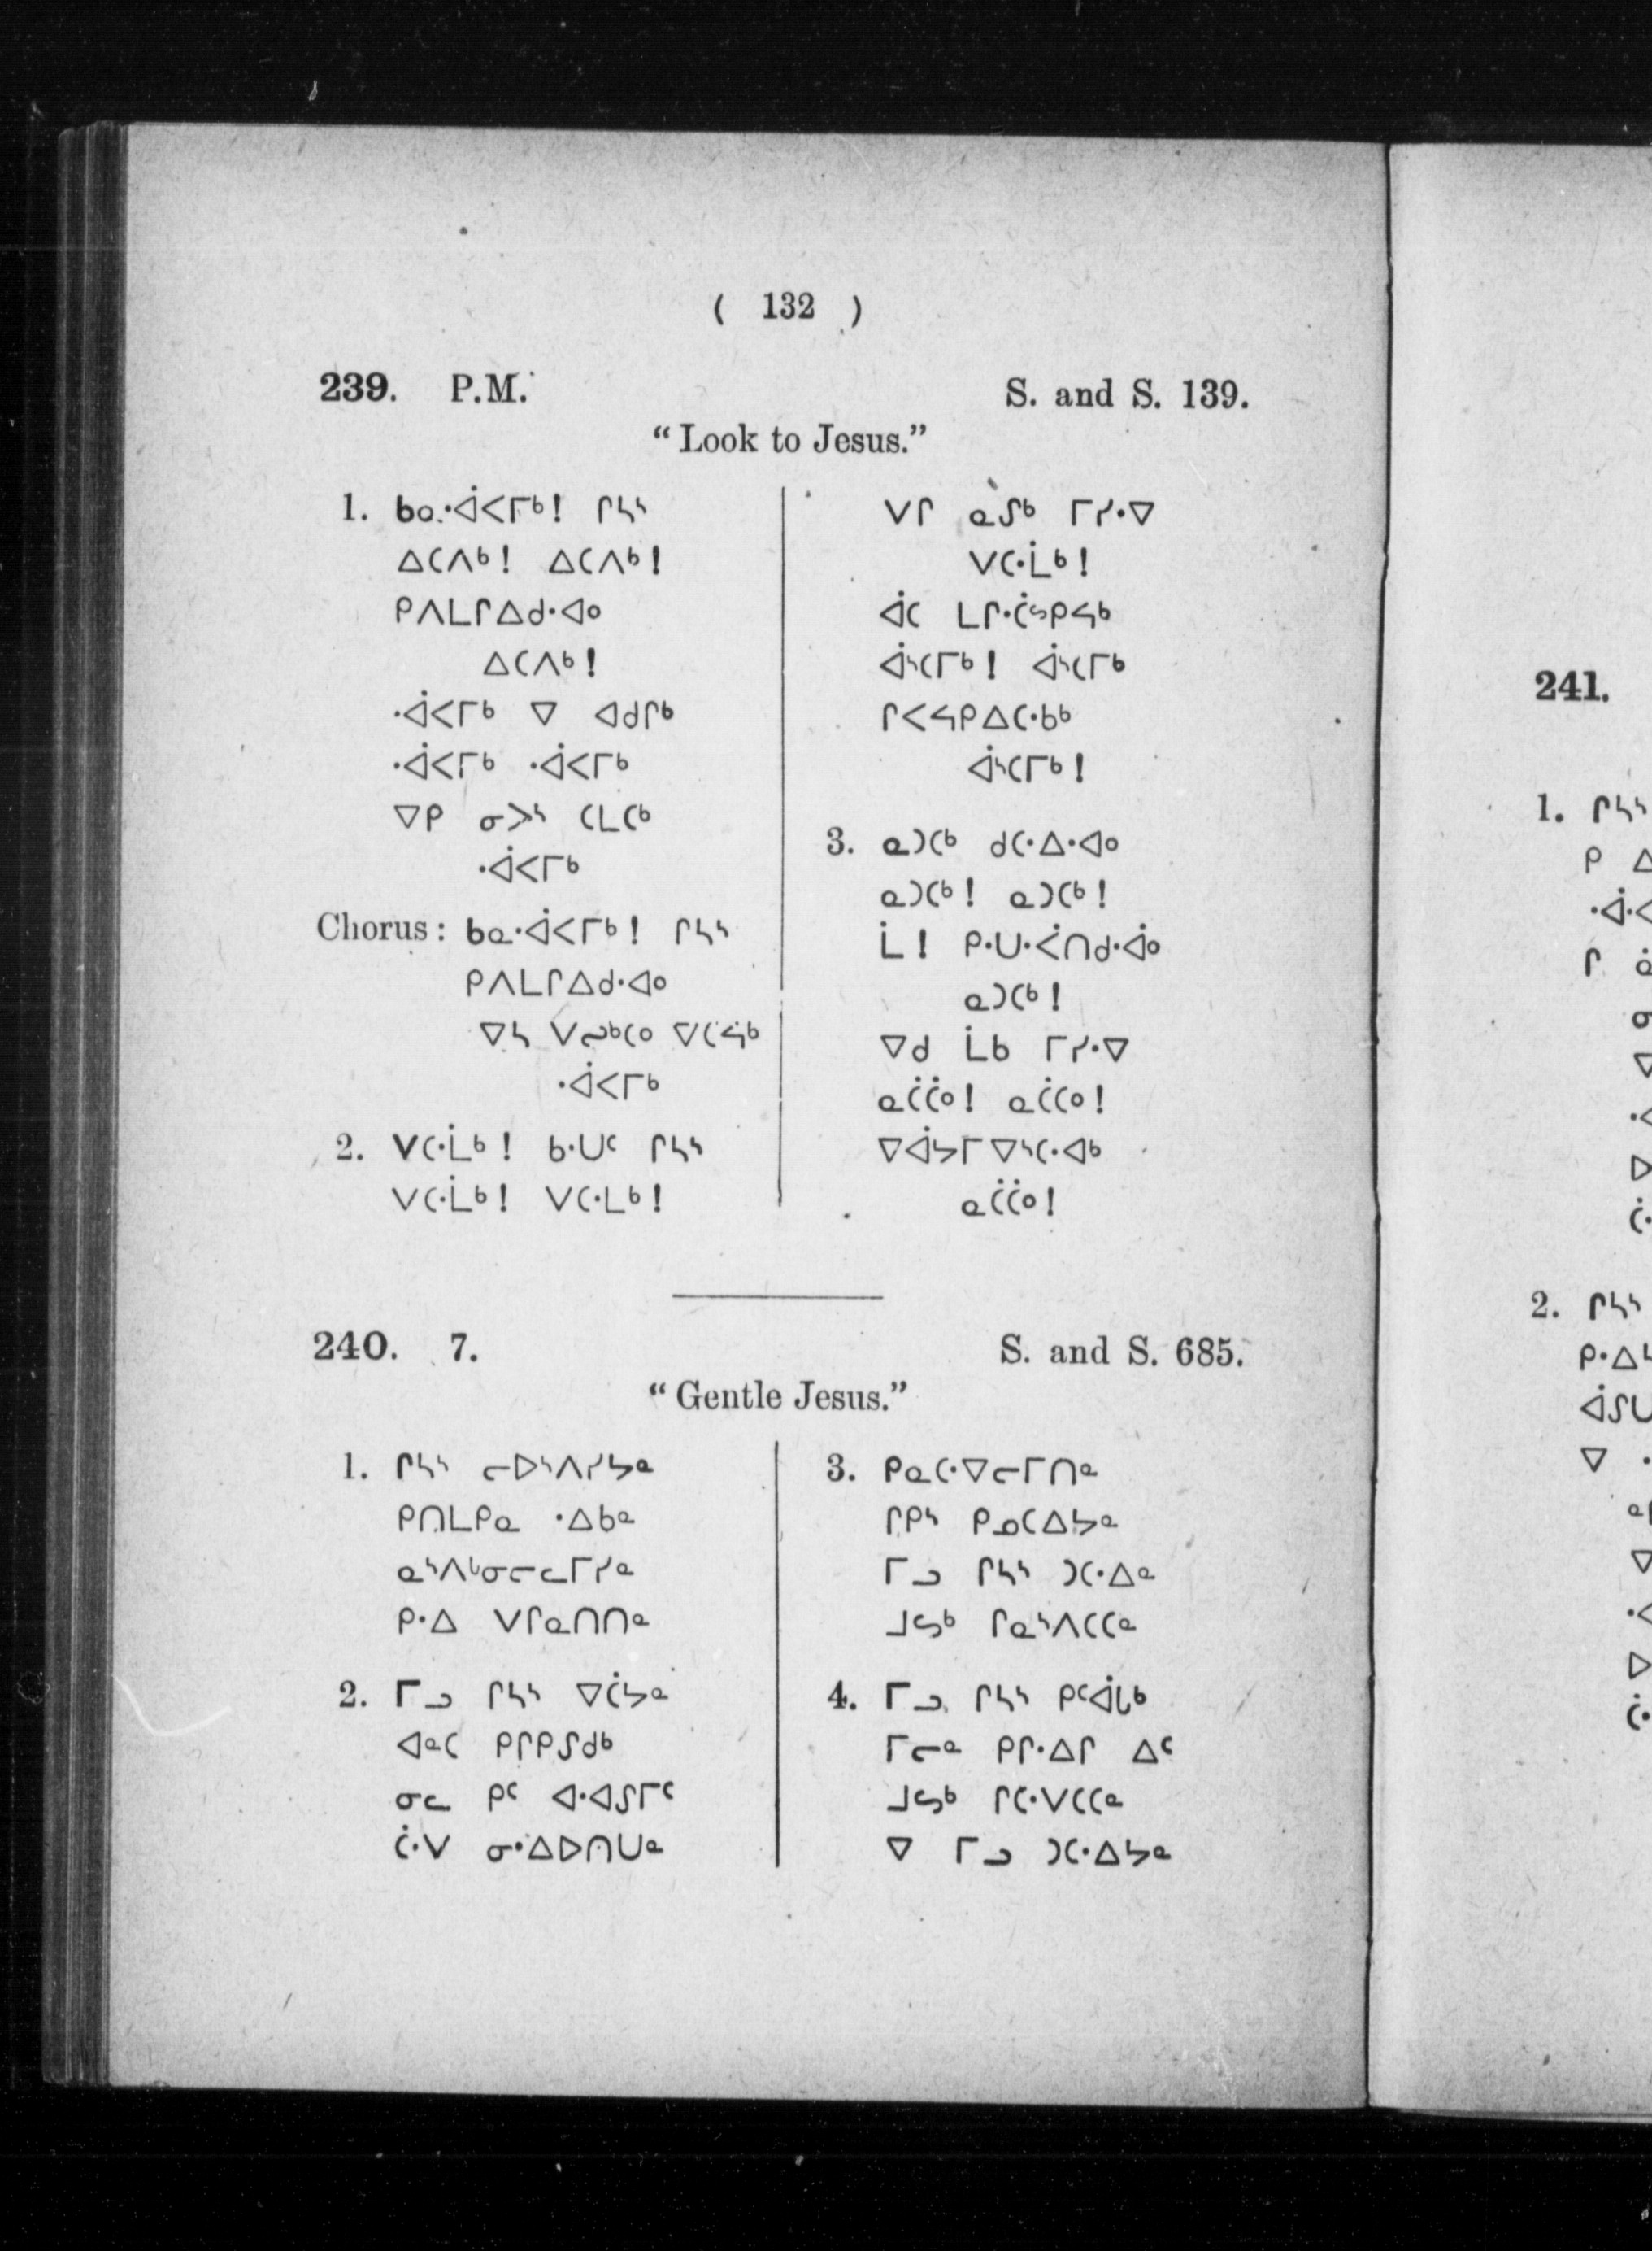 ( 132 )
239. P.M. S. and S. 139.
“ Look to Jesus.”
1. ᑲᓇᐧᐋᐸᒥᒃ! ᒋᓴᔅ
ᐃᑕᐱᒃ! ᐃᑕᐱᒃ!
ᑭᐱᒪᒋᐃᑯᐧᐊᐤ
ᐃᑕᐱᒃ!
ᐧᐋᐸᒥᒃ ᐁ ᐊᑯᒋᒃ
ᐧᐋᐸᒥᒃ ᐧᐋᐸᒥᒃ
ᐁᑭ ᓂᐳᔅ ᑕᒪᑕᒃ
ᐧᐋᐸᒥᒃ
Chorus: ᑲᓇᐧᐋᐸᒥᒃ! ᒋᓴᔅ
ᑭᐱᒪᒋᐃᑯᐧᐊᐤ
ᐁᓴ ᐯᓀᒃᑕᐤ ᐁᑕᔦᒃ
ᐧᐋᐸᒥᒃ
2. ᐯᑕᐧᒫᒃ! ᑲᐧᑌᑦ ᒋᓴᔅ
ᐯᑕᐧᒫᒃ! ᐯᑕᐧᒪᒃ!
ᐯᒋ ᓇᔑᒃ ᒥᓯᐧᐁ
ᐯᑕᐧᒫᒃ!
ᐋᑕ ᒪᒋᐧᑖᔥᑭᔦᒃ
ᐋᔅᑕᒥᒃ! ᐋᔅᑕᒥᒃ
ᒋᐸᔦᑭᐃᑕᐧᑲᒃ
ᐋᔅᑕᒥᒃ!
3. ᓇᑐᑕᒃ ᑯᑕᐧᐃᐧᐊᐤ
ᓇᑐᑕᒃ! ᓇᑐᑕᒃ!
ᒫ! ᑭᐧᑌᐧᐹᑎᑯᐧᐋᐤ
ᓇᑐᑕᒃ!
ᐁᑯ ᒫᑲ ᒥᓯᐧᐁ
ᓇᑖᑖᐤ! ᓇᑖᑕᐤ!
ᐁᐋᔭᒥ ᐁᔅᑕᐧᐊᒃ
ᓇᑖᑖᐤ!
240. 7. S. and S. 685.
“ Gentle Jesus.”
1. ᒋᓴᔅ ᓕᐅᔅᐱᓯᔭᓐ
ᑭᑎᒪᑭᓇ ᐧᐃᑲᓐ
ᓇᔅᐱᒡᓂᓕᓚᒥᓯᓐ
ᑭᐧᐃ ᐯᒋᓇᑎᑎᓐ
2. ᒥᓗ ᒋᓴᔅ ᐁᑖᔭᓐ
ᐊᓐᑕ ᑭᒋᑭᔑᑯᒃ
ᓂᓚ ᑭᑦ ᐊᐧᐊᔑᒥᑦ
ᑖᐧᐯ ᓂᐧᐃᐅᑎᑌᓐ
3. ᑭᓇᑕᐧᐁᓕᒥᑎᓐ
ᒋᑭᔅ ᑭᓄᑕᐃᔭᓐ
ᒥᓗ ᒋᓴᔅ ᑐᑕᐧᐃᓐ
ᒧᔕᒃ ᒋᓇᔅᐱᑕᑕᓐ
4. ᒥᓗ ᒋᓴᔅ ᑭᑦᐋᒐᒃ
ᒥᓕᓐ ᑭᒋᐧᐃᒋ ᐃᑦ
ᒧᔕᒃ ᒋᑕᐧᐯᑕᑕᓐ
ᐁ ᒥᓗ ᑐᑕᐧᐃᔭᓐ
241.
1. ᒋᓴᔅ
ᑭ
ᒋ
2. ᒋᓴᔅ
ᐁ